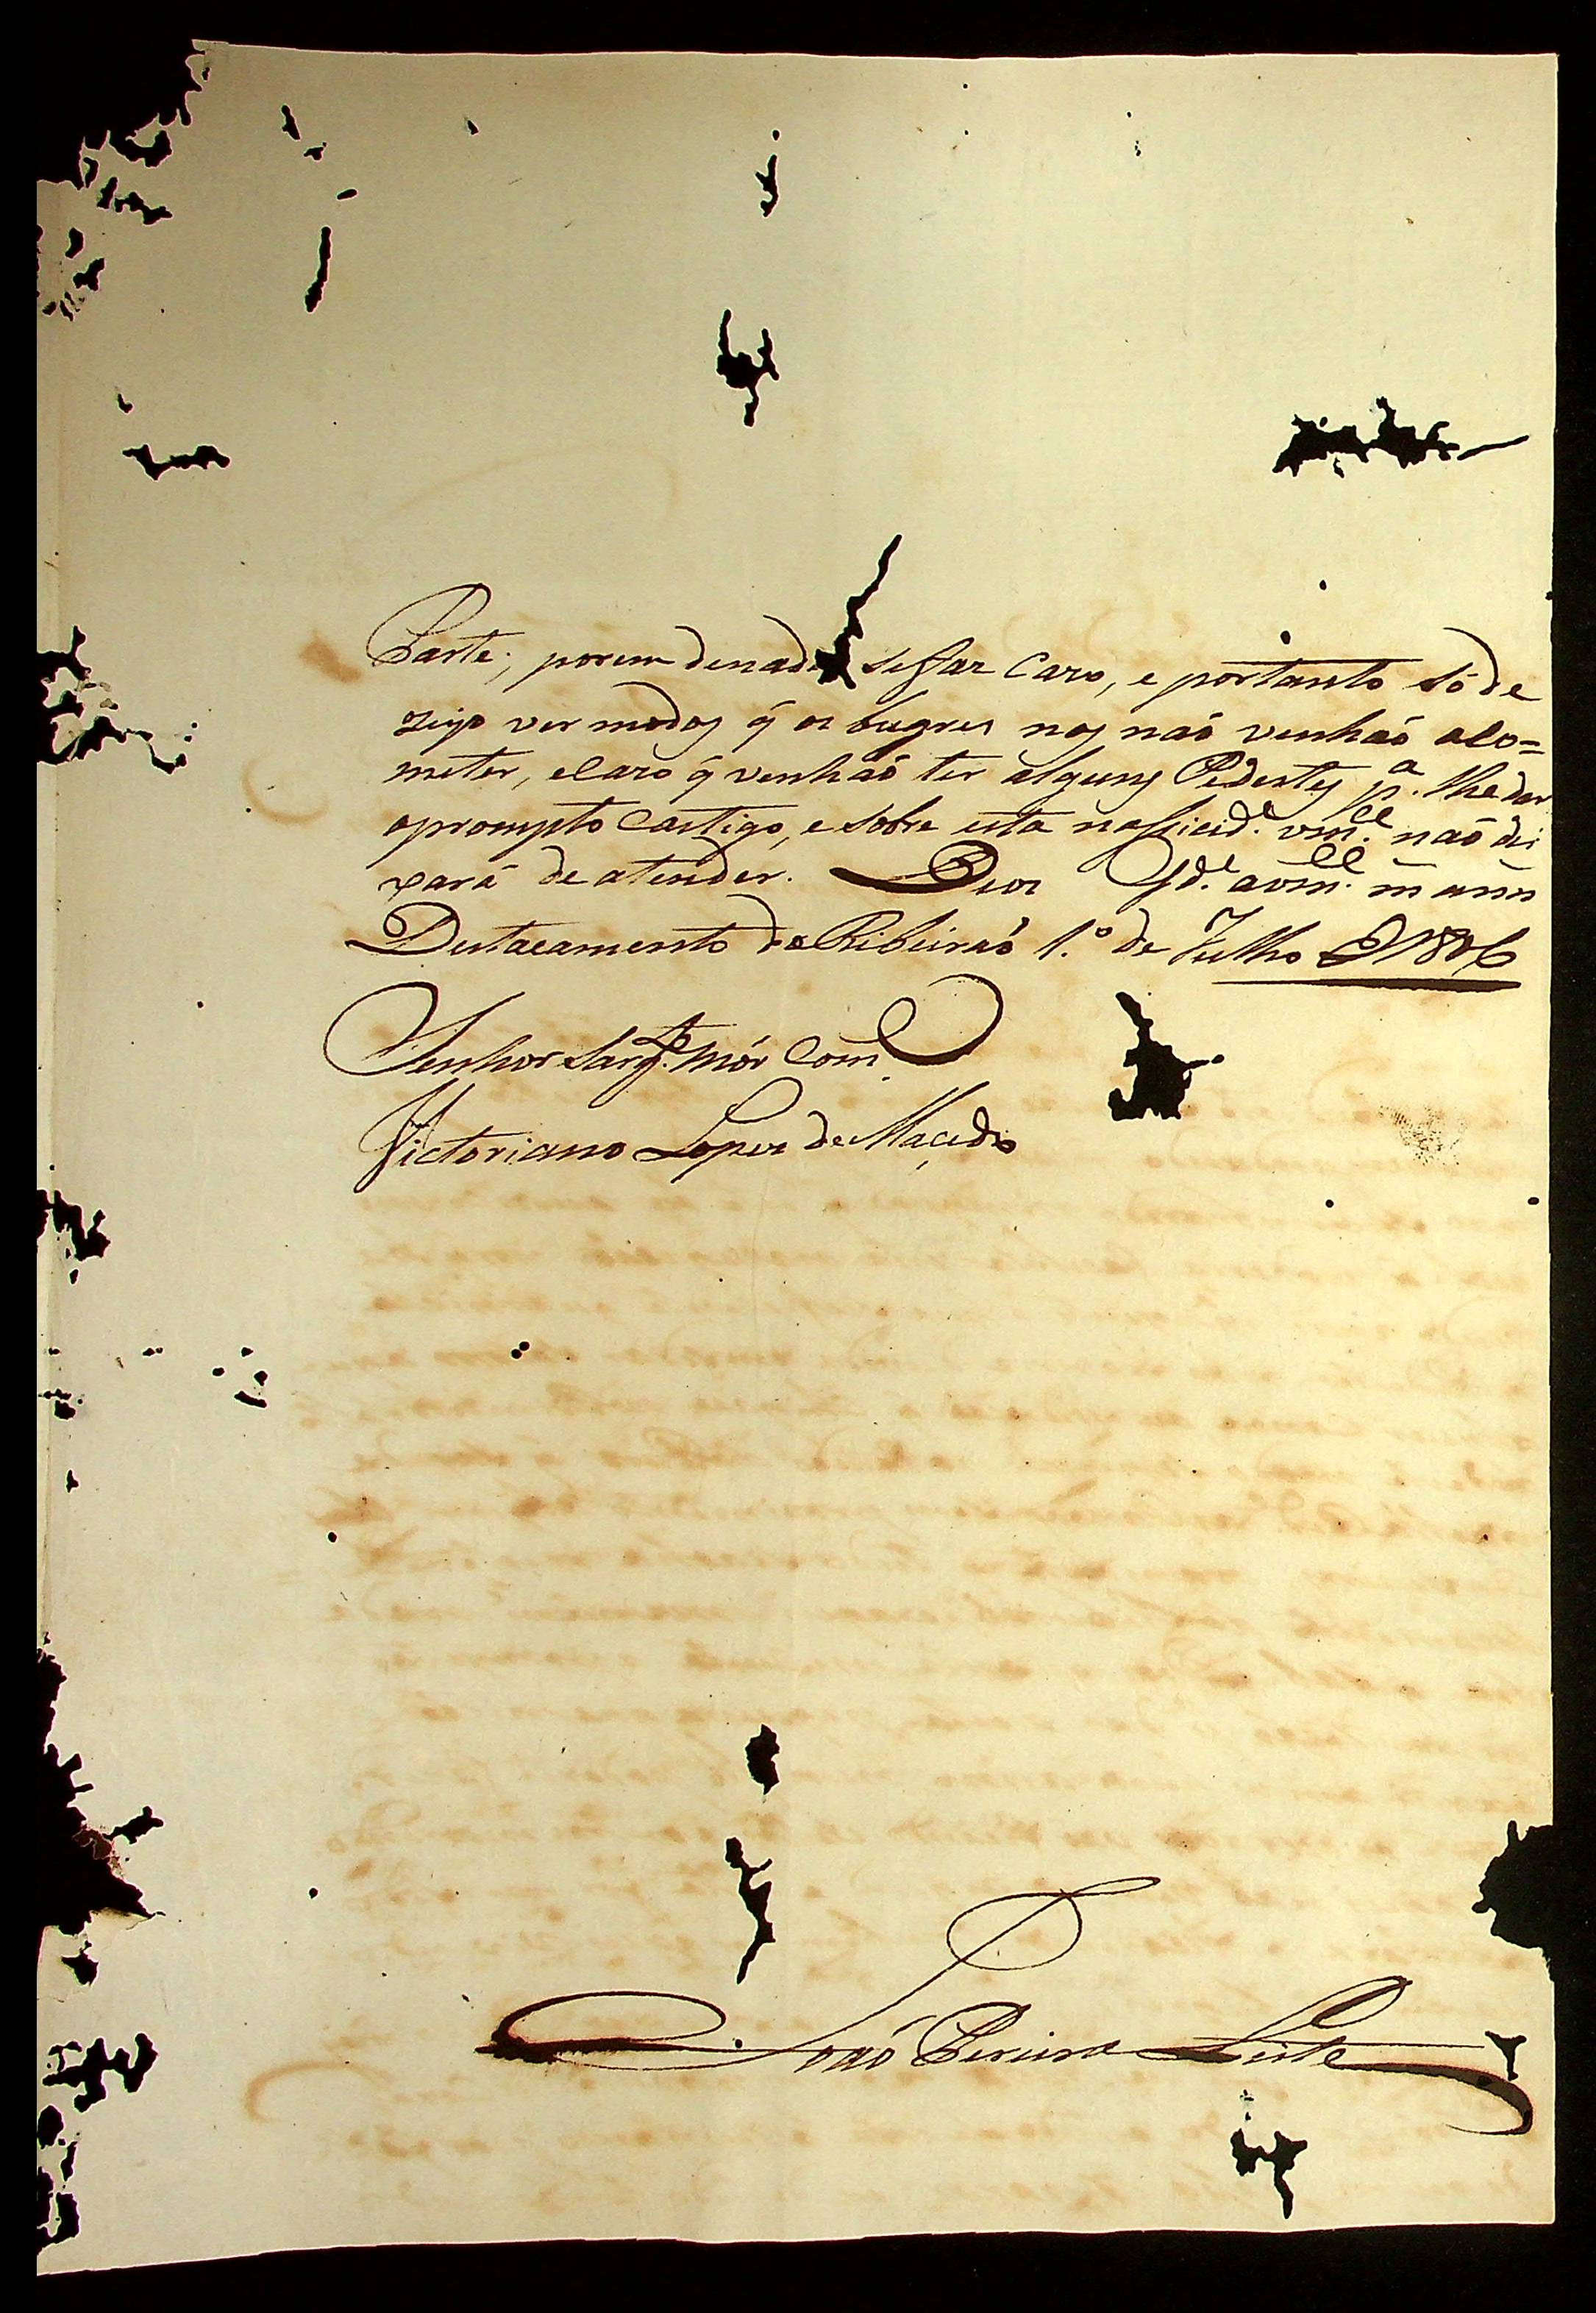 Parte; porem denad sessar Caro, e portanto só de
zejo ver modos q̃ os bugres nos naõ venhaõ aco=
meter, e caso q̃ venhaõ ter alguns Pedestes p.ª lhe dar
oprompto Castigo, e sobre esta nessicid.e vm.ce naõ dei
xará de atender. Deos G.de avm.ce m̃ ann̄
Destacamento do Ribeiraõ 1.º de Julho d 1806
Senhor Sarg.to Mór Com.
Victoriano Lopes de Macedo
Joaõ Pereira Leite